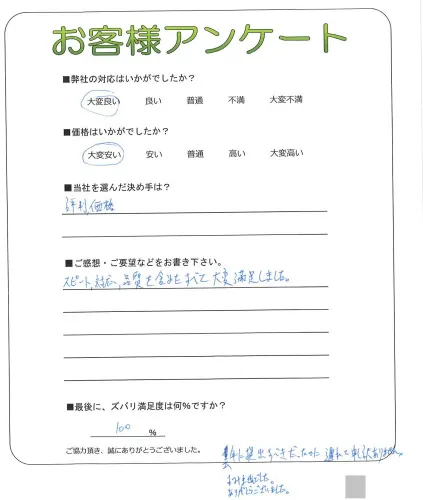 お客様アンケート
■弊社の対応はいかがでしたか?
大変良い 良い 普通 不満 大変不満
■価格はいかがでしたか?
大変安い 安い 普通 高い 大変高い
■当社を選んだ決め手は?
評判、価格
■ご感想・ご要望などをお書き下さい。
スピード、対応、品質を含めたすべて大変満足しました。
■最後に、ズバリ満足度は何%ですか?
100 %
ご協力頂き、誠にありがとうございました。
提出すべきだったのに 遅れて申し訳ありません
すみませんでした。
ありがとうございました。